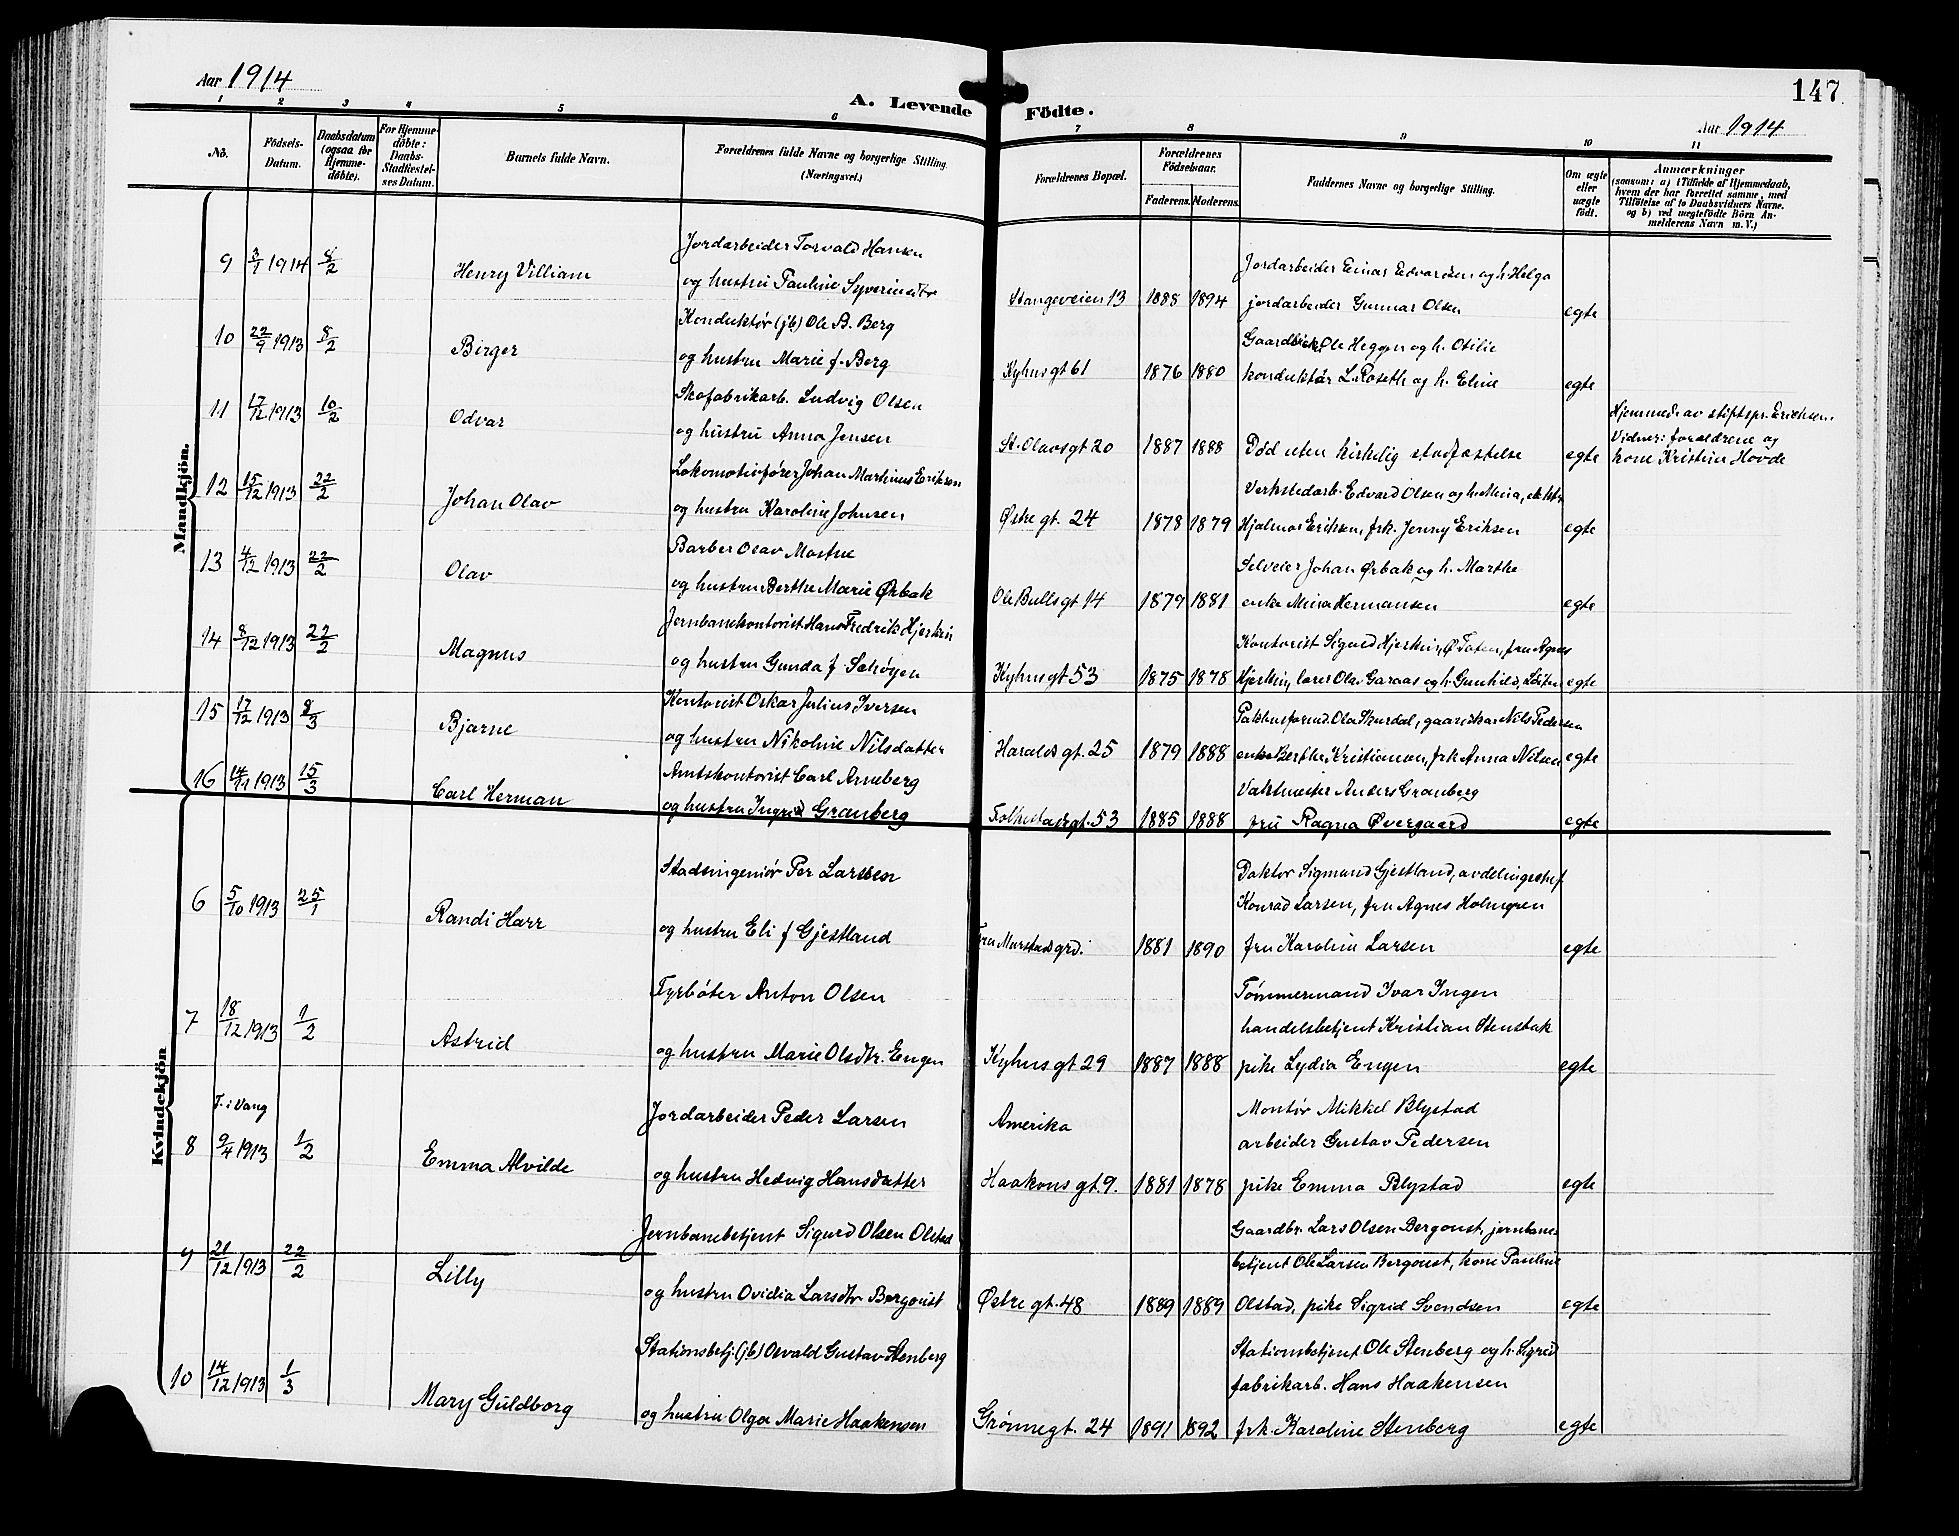 Aar 1914
A. Levende Födte.
147
Aar 1914
1 2 3 4 5 6 7 8 9 10 11
No.
Födsels-Datum.
Daabsdatum (ogsaa for Hjemme-döbte).
For Hjemme-döbte: Daabs-Stadfæstel-ses Datum.
Barnets fulde Navn.
Forældrenes fulde Navne og borgerlige Stilling. (Næringsvei.)
Forældrenes Bopæl.
Forældrenes Födselsaar.
Faderens. Moderens.
Faddernes Navne og borgerlige Stilling.
Om ægte eller uægte födt.
Anmærkninger
(saasom: a) i Tilfælde af Hjemmedaab,
hvem der har forrettet samme, med
Tilföielse af to Daabsvidners Navne.
og b) ved uægtefödte Börn An-
melderens Navn m. V.)
Mandkjön.
9 3/1 1914 8/2 Henry Villiam
Jordarbeider Torvald Hansen
og hustru Pauline Syverinsdtr
Stangeveien 13 1888 1894
Jordarbeider Einar Edvardsen og h. Helga
jordarbeider Gunnar Olsen
egte
10 22/9 1913 8/2 Birger
Konduktør (jb) Ole B. Berg
og hustru Marie f. Berg
Kyhns gt 61 1876 1880
Ole Heggen og h. Otilie
konduktør L. Roseth og h. Eline
egte
11 17/12 1913 10/2 Odvar
Skofabrikarb. Ludvig Olsen
og hustru Anna Jensen
St. Olavs gt 20 1887 1888
Död uten kirkelig stadfæstelse
egte
Hjemmed. av stiftspr. Erichsen.
Vidner: forældrene og
kone Kristine Hovde
12 15/12 1913 22/2 Johan Olav
Lokomotivfører Johan Martinus Eriksen
og hustru Karoline Johnsen
Østre gt. 24 1878 1879
Verkstedarb. Edvard Olsen og h. Mina,
Hjalmar Eriksen, frk. Jenny Eriksen
egte
13 4/12 1913 22/2 Olav
Barber Olav Mostue
og hustru Berthe Marie Ørbak
Ole Bulls gt 14 1879 1881
Selveier Johan Ørbak og h. Marthe
enke Mina Hermansen
egte
14 8/12 1913 22/2 Magnus
Jernbanekontorist Hans Fredrik Hjerkin
og hustru Gunda f.
Kyhns gt 53 1875 1878
Kontorist Sigurd Hjerkin, Ø Toten, fru Agnes
Hjerkin, lærer Olav Garaas og h. Gunhild, Löiten
egte
15 17/12 1913 8/3 Bjarne
Kontorist Oskar Julius Iversen
og hustru Nikoline Nilsdatter
Haralds gt. 25 1879 1888
Pakhusformd. Ola Skurdal, Nils Pedersen
enke Berthe Kristiansen, frk Anna Nilsen
egte
16 14/11 1913 15/3 Carl Herman
Amtskontorist Carl Arneberg
og hustru Ingrid Granberg
Folkestads gt. 53 1885 1888
Vaktmester Anders Granberg
fru Ragna Øvergaard
egte
Kvindekjön
6 5/10 1913 25/1 Randi Harr
Stadsingeniør Per Larssen
og hustru Eli f Gjestland
Fru Murstads grd. 1881 1890
Doktor Sigmund Gjestland, avdelingschef
Konrad Larsen, fru Agnes Holmgren
fru Karoline Larsen
egte
7 18/12 1913 1/2 Astrid
Fyrböter Anton Olsen
og hustru Marie Olsdtr. Engen
Kyhns gt 29 1887 1888
Tömmermand Ivar Engen
handelsbetjent Kristian Stensbak
pike Lydia Engen
egte
F. i Vang
8 9/4 1913 1/2 Emma Alvilde
Jordarbeider Peder Larsen
og hustru Hedvig Hansdatter
Amerika
Haakons gt. 9. 1881 1878
Montör Mikkel Blystad
arbeider Gustav Pedersen
pike Emma Blystad
egte
9 21/12 1913 22/2 Lilly
Jernbanebetjent Sigurd Olsen Olstad
og hustru Ovidia Larsdtr Bergquist
Østre gt. 48 1889 1889
Gaardbr. Lars Olsen Bergquist, jernbane-
betjent Ole Larsen Bergquist, kone Pauline
Olstad, pike Sigrid Svendsen
egte
10 14/12 1913 1/3 Mary Guldborg
Stationsbetj. (jb) Osvald Gustav Stenberg
og hustru Olga Marie Haakensen
Grönnegt. 24 1891 1892
Stationsbetjent Ole Stenberg og h. Sigrid
fabrikarb. Hans Haakensen
frk. Karoline Stenberg
egte